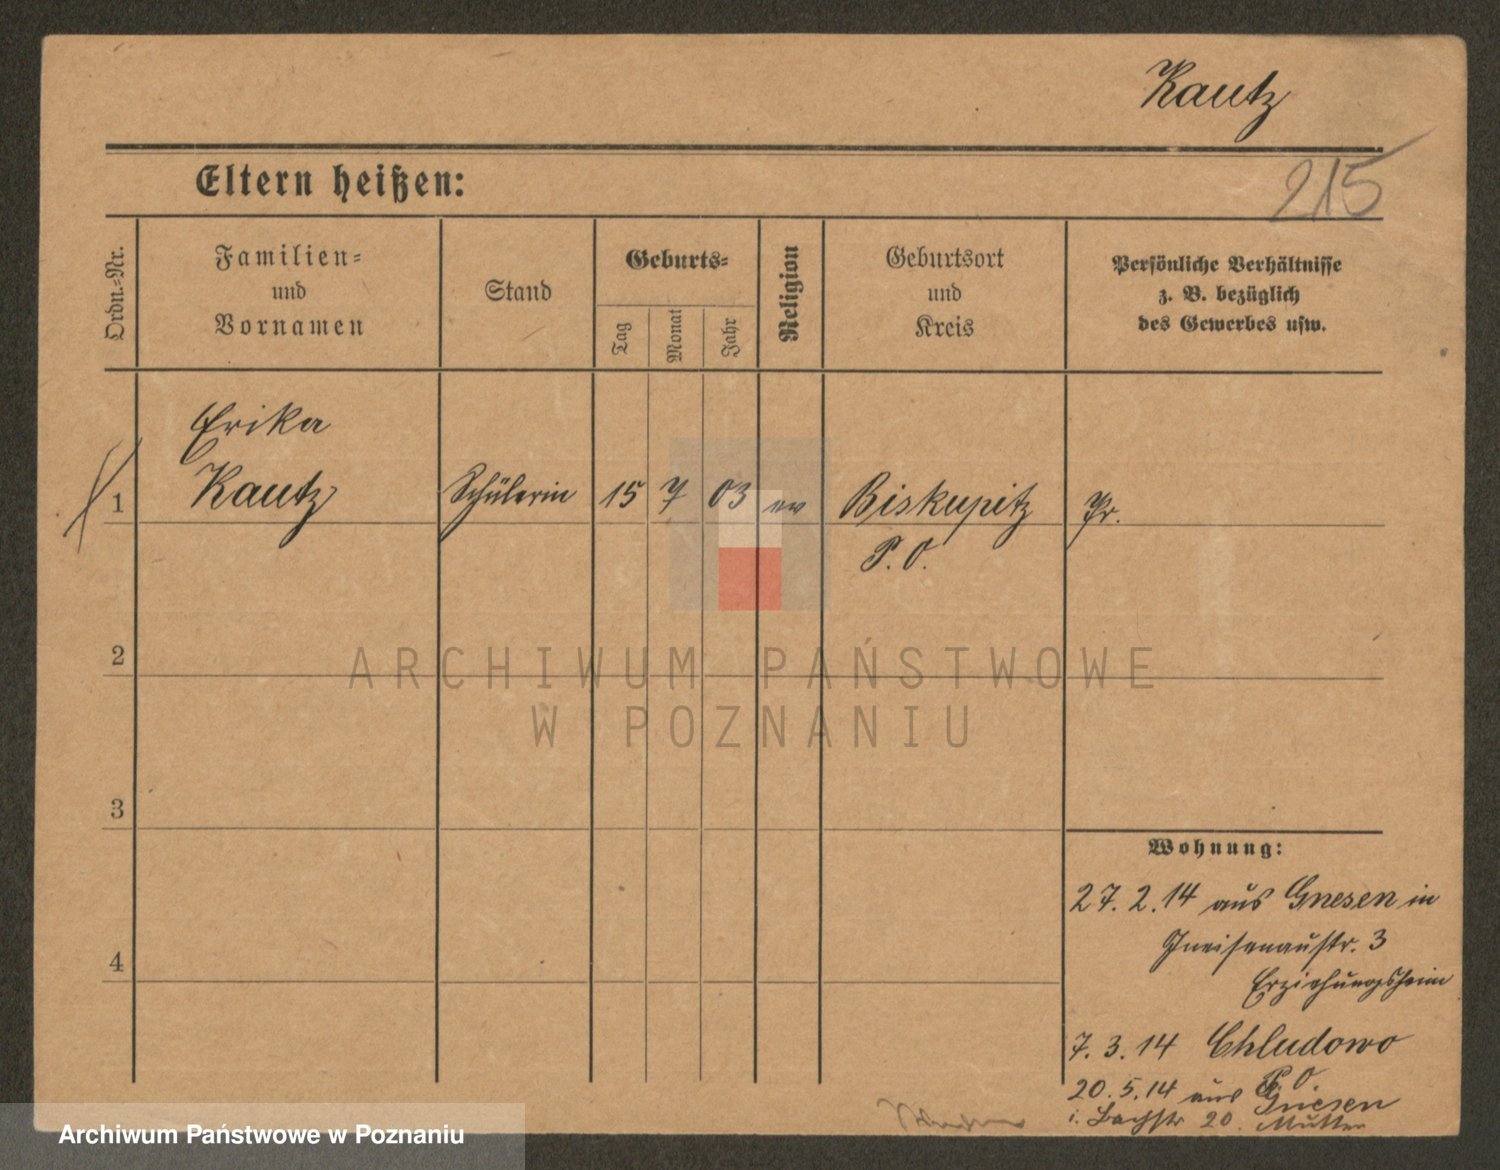 Kautz
215
Eltern heißen:
Ordn.-Nr.
Familien-
und
Vornamen
Stand
Geburts-
Tag
Monat
Jahr
Religion
Geburtsort
und
Kreis
Persönliche Verhältnisse
z. B. bezüglich
des Gewerbes usw.
Erika
1 Kautz Schülerin 15 7 03 ev Biskupitz Pr.
P. O.
2
ARCHIWUM PAŃSTWOWE
W POZNANIU
3
Wohnung:
27. 2. 14 aus Gnesen in
Gneisenaustr. 3
4
Erziehungsheim
7. 3. 14 Chludowo
P. O
20. 5. 14 aus Gnesen
i. Bachstr 20. Mutter
Archiwum Państwowe w Poznaniu